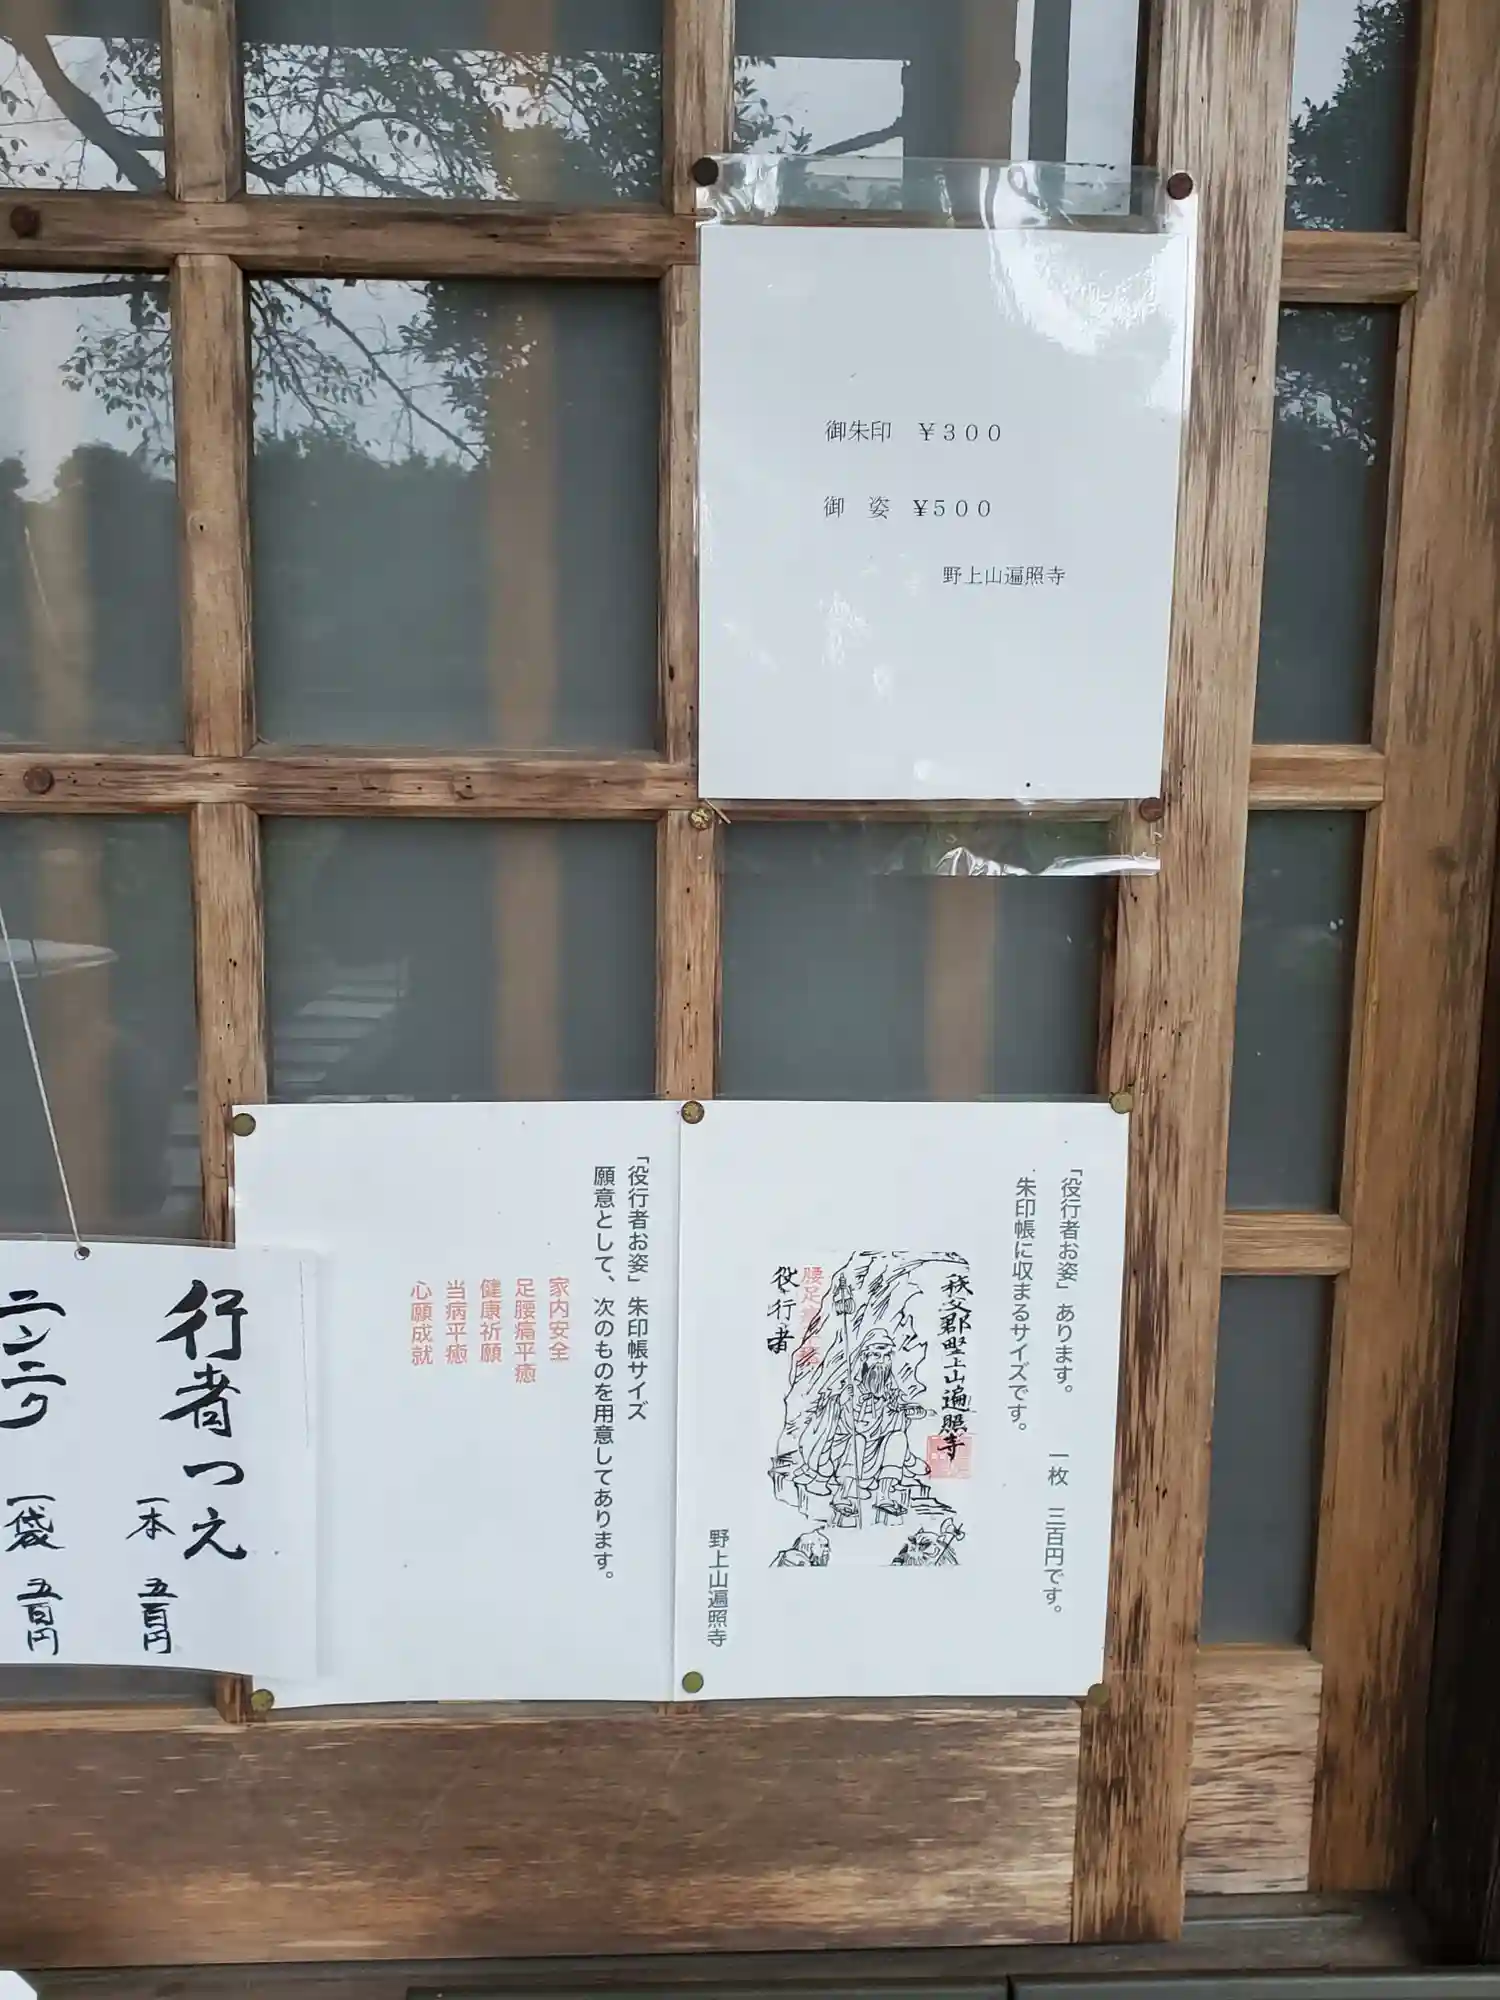 御朱印　￥３００
御　姿　￥５００
野上山遍照寺
「役行者お姿」あります。　一枚　三百円です。
朱印帳に収まるサイズです。
秩父郡野上山遍照寺
役行者
野上山遍照寺
「役行者お姿」朱印帳サイズ
願意として、次のものを用意してあります。
家内安全
足腰痛平癒
健康祈願
当病平癒
心願成就
行者つえ
一本　五百円
ニンニク
一袋　五百円